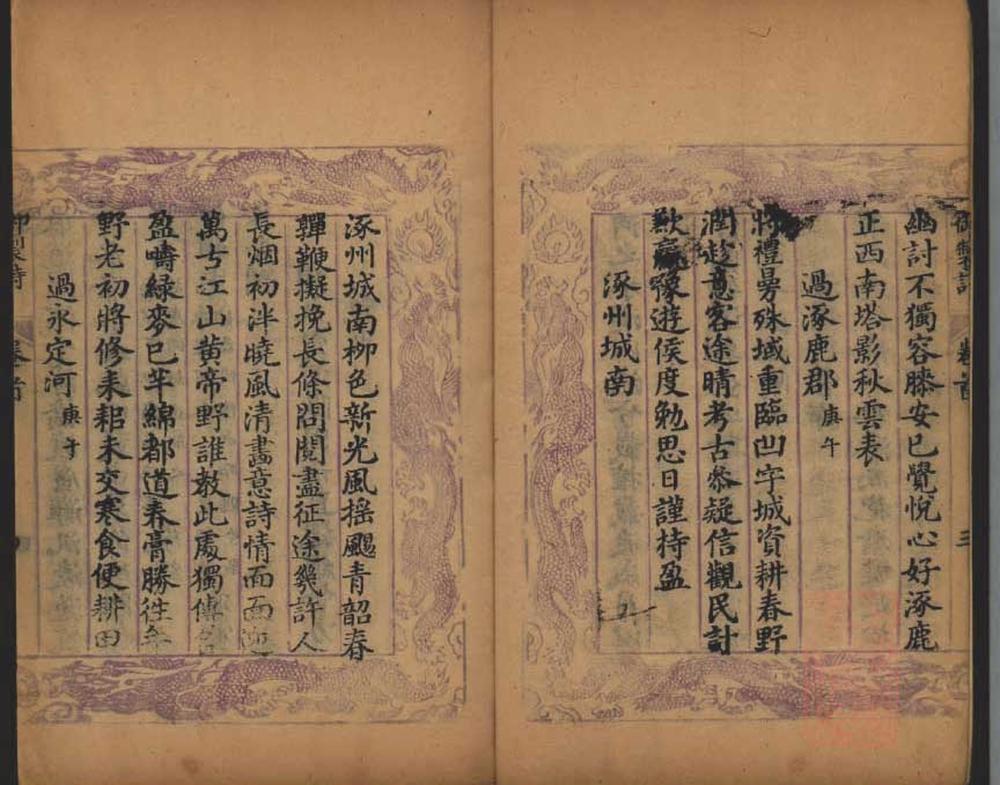 御製詩 卷首 三
幽討不獨容膝安已覺悅心好涿鹿
正西南塔影秋雲表
過涿鹿郡 庚午
將禮曇殊域重臨凹字城資耕春野
潤趁意客途晴考古參疑信觀民計
歉贏豫遊俟度勉思日謹持盈
涿州城南
涿州城南柳色新光風搖颺青韶春
嚲鞭擬挽長條問閱盡征途幾許人
長烟初泮曉風清畵意詩情面面
萬古江山黃帝野誰教此處獨傳
盈疇綠麥已芊綿都道春膏勝往年
野老初將修耒耜未交寒食便耕田
過永定河 庚午
御製詩 卷首